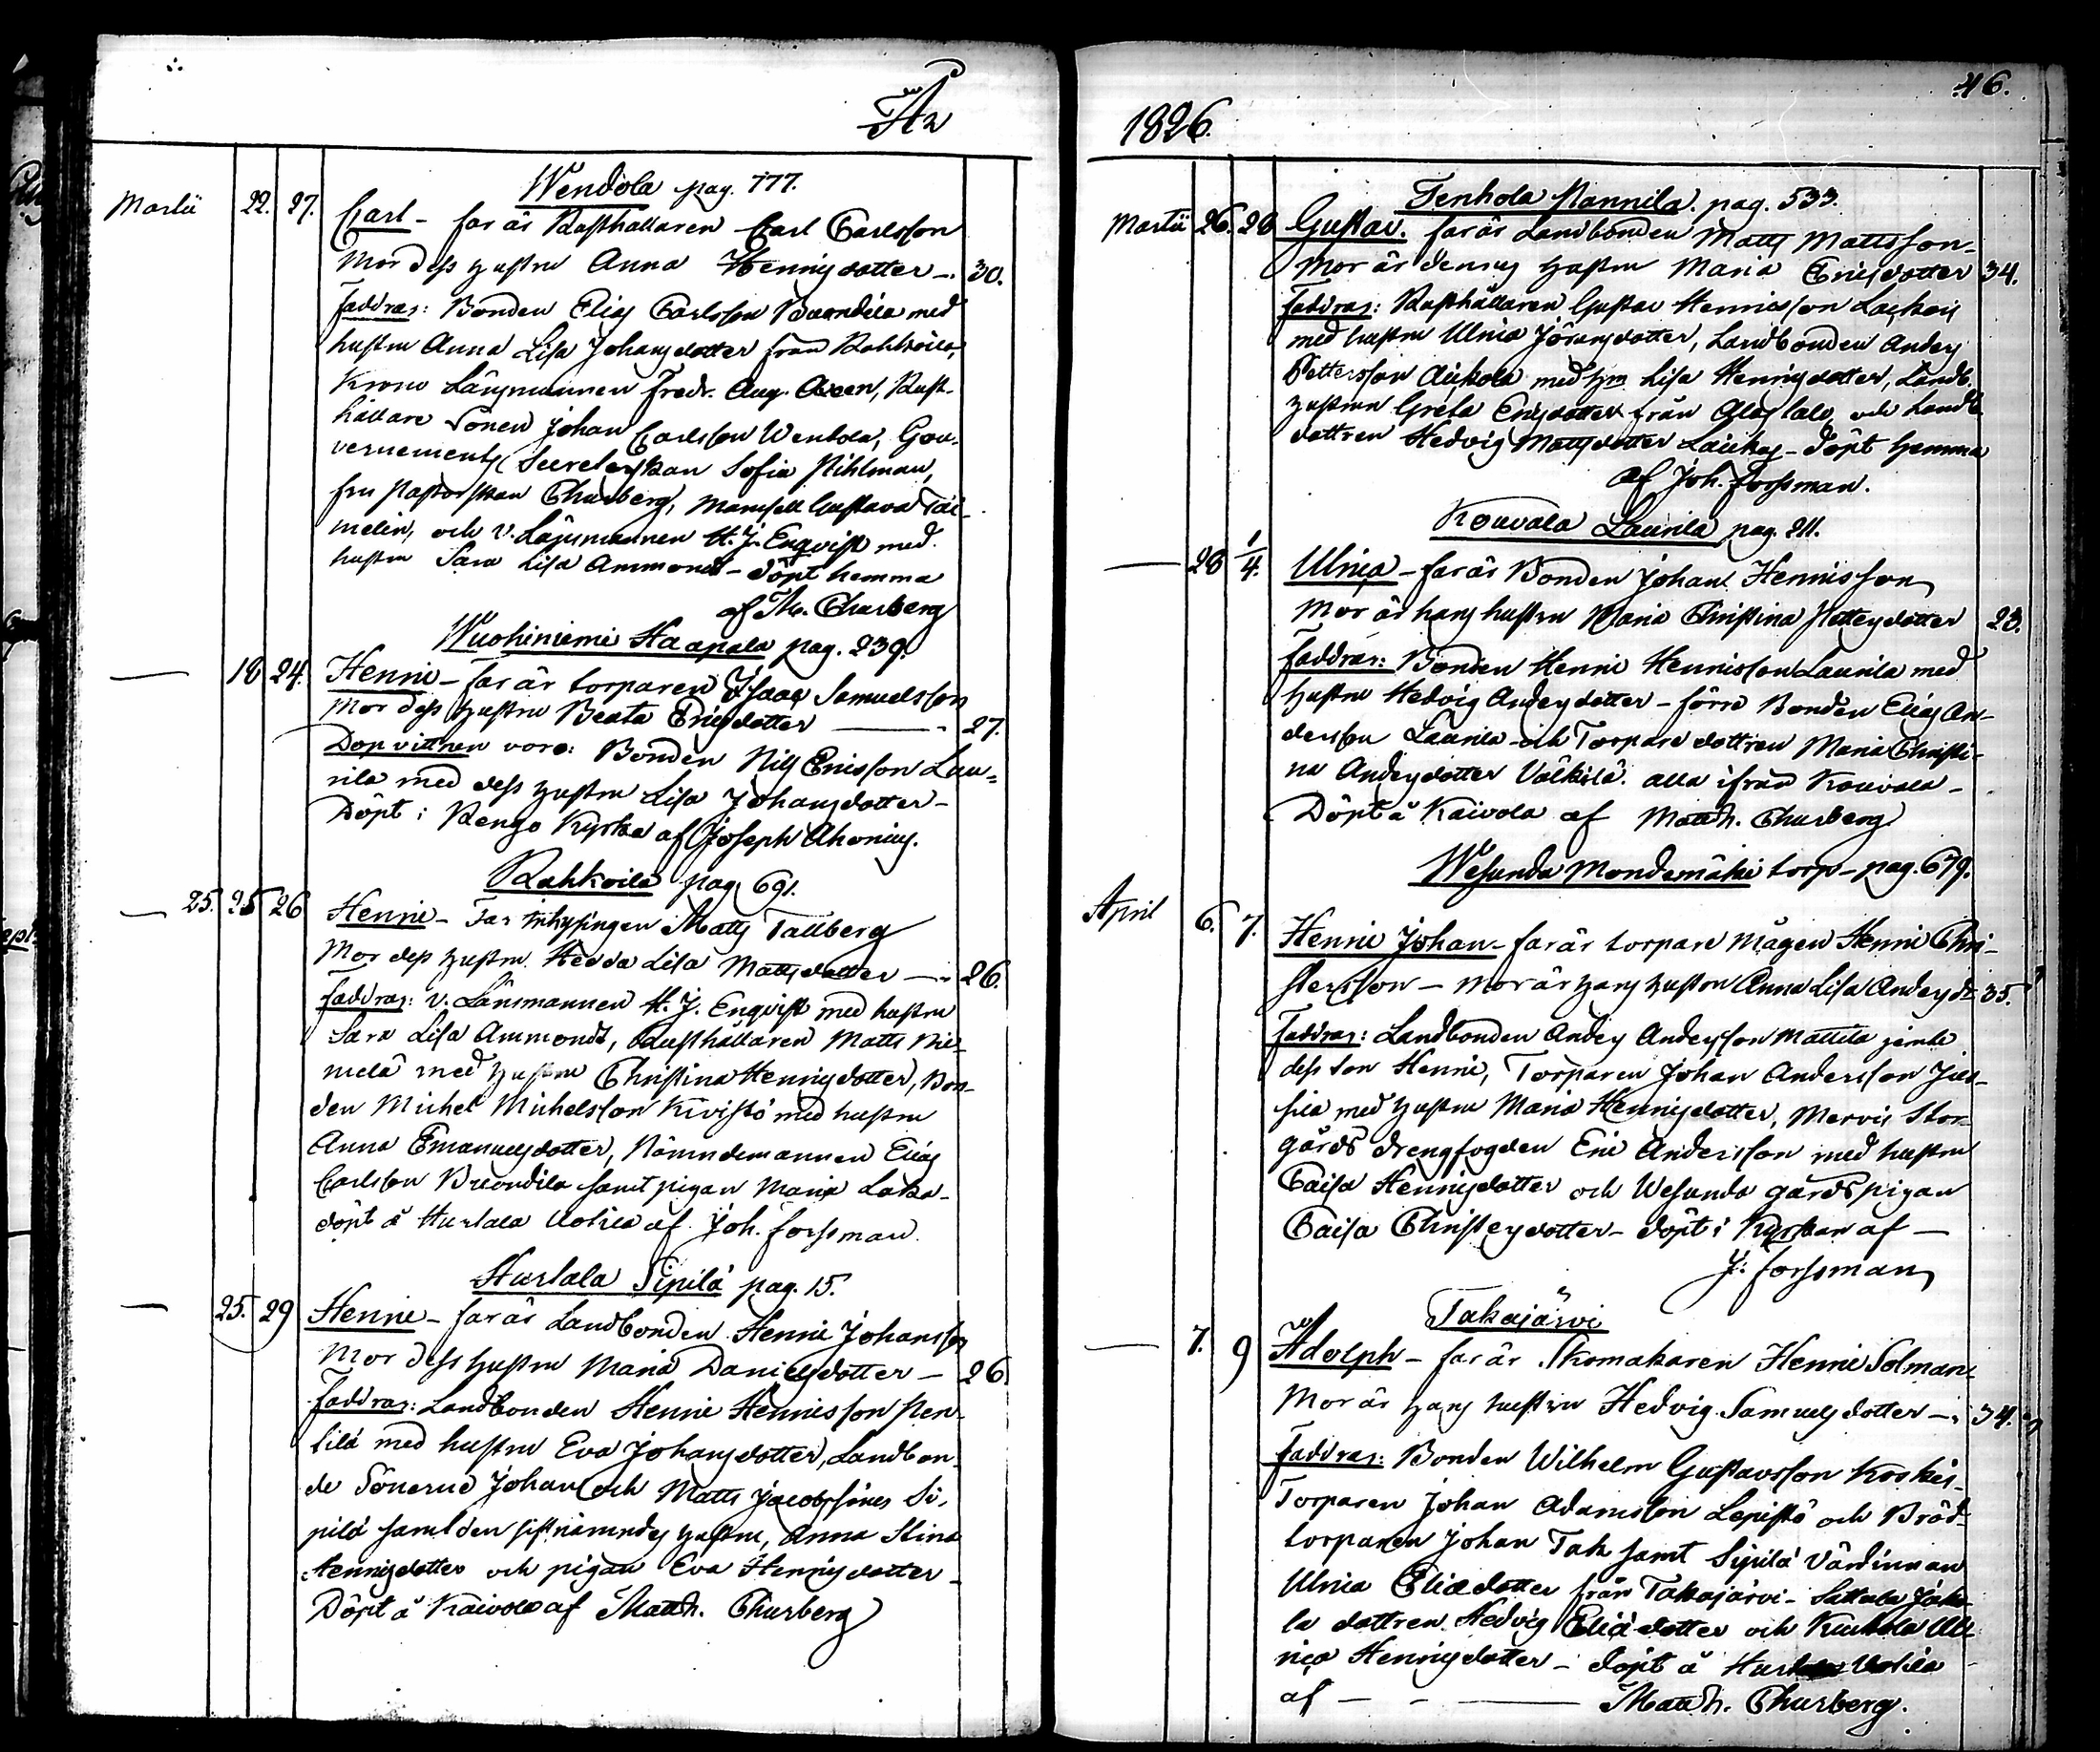 År
Wendola pag. 777.
Martii 22. 27. Carl - far är Rusthållaren Carl Carlsson
Mor dess hustru Anna Henrigsdotter - 30.
Faddrar: Bonden Elias Carlsson med
hustru Anna Lisa Johansdotter från Rahkoila,
Krono Länsmannen Fredr. Aug. Rust-
hållare Sonen Johan Carlsson Wendola, Gou-
vernements Secreterskan Sofia Pihlman,
fru Pastorskan Churberg, Mamsell Gustava Tai-
melin, och v. Länsmannen H. J. Enqvist med
hustru Sara Lisa Ammondt - döpt hemma
af Th. Churberg
Wuohiniemi Haapala pag. 239.
— 18 24. Henric - far är torparen Isaac Samuelsson
Mor dess hustru Beata Ericsdotter — 27.
Dopvittnen voro: Bonden Nils Ericsson Lau=
rila med dess hustru Lisa Johansdotter -
Döpt i Rengo Kyrka af Joseph Ahonius.
Rahkoila pag. 691.
— 25. 25 26 Henric - Far inhysingen Matts Tallberg
Mor dess hustru Hedda Lisa Mattsdotter — 26.
Faddrar: v. Länsmannen H. J. Enqvist med hustru
Sara Lisa Ammondt, Rusthållaren Matts Nie-
melä med hustru Christina Henricsdotter, Bon-
den Michel Michelsson Kivistö med hustru
Anna Emanuelsdotter, Nämndemannen Elias
Carlsson samt pigan Maria
döpt å Hurtala Uotila af Joh. Forssman.
Hurtala Sipilä pag. 15.
— 25. 29 Henric - far är Landbonden Henric Johansson
Mor dess hustru Maria Danielsdotter — 26
Faddrar: Landbonden Henric Henricsson Pen-
tilä med hustru Eva Johansdotter, Landbon-
de Sönerne Johan och Matts Jacobssöner Si-
pilä samt den sistnämndes hustru, Anna Stina
Henricsdotter och pigan Eva Henricsdotter -
Döpt å Kaivola af Matth. Churberg
46.
1826.
Tenhola Mannila. pag. 533.
Martii 26. 28 Gustav. far är Landbonden Matts Mattsson -
Mor är dennes hustru Maria Ericsdotter 34.
Faddrar: Rusthållaren Gustav Henricsson
med hustru Ulrica Jöransdotter, Landbonden Anders
Pettersson med hru Lisa Henricsdotter, Landb.
hustrun Greta Ericsdotter från och Landb.
dottren Hedvig Mattsdotter - döpt hemma
af Joh. Forssman.
Kouvala Laurila pag. 211.
— 28 1/4. Ulrica - far är Bonden Johan Henricsson
Mor är hans hustru Maria Christina 23.
Faddrar: Bonden Henric Henricsson Laurila med
hustru Hedvig Andersdotter - förre Bonden Elias An-
dersson Laurila och Torpare dottren Maria Christi-
na Andersdotter Välkilä. alla ifrån Kouvala -
Döpt å Kaivola af Matth. Churberg
Wesunda Mondemäki torp - pag. 679.
April 6. 7. Henric Johan - far är torpare mågen Henric Chri-
stersson - Mor är hans hustru Anna Lisa Andersdr 35.
Faddrar: Landbonden Anders Andersson Mattila jemte
dess son Henric, Torparen Johan Andersson
med hustru Maria Henricsdotter, Mervis Stor-
gårds drengfogden Eric Andersson med hustru
Caisa Henricsdotter och Wesunda gårds pigan
Caisa Christersdotter - döpt i Kyrkan af —
J. Forssman
Takajärvi
— 7. 9 Adolph - far är Skomakaren Henric Solman
Mor är hans hustru Hedvig Samuelsdotter — 34.
Faddrar: Bonden Wilhelm Gustavsson Koskis -
Torparen Johan Adamsson Lepistö och Bröd-
torparen Johan Tak samt Sipilä Värdinnan
Ulrica Eliædotter från Takajärvi - Sattula
la dottren Hedvig Eliædotter och Ul-
rica Henricsdotter - döpt å Uotila
af — — Matth. Churberg.